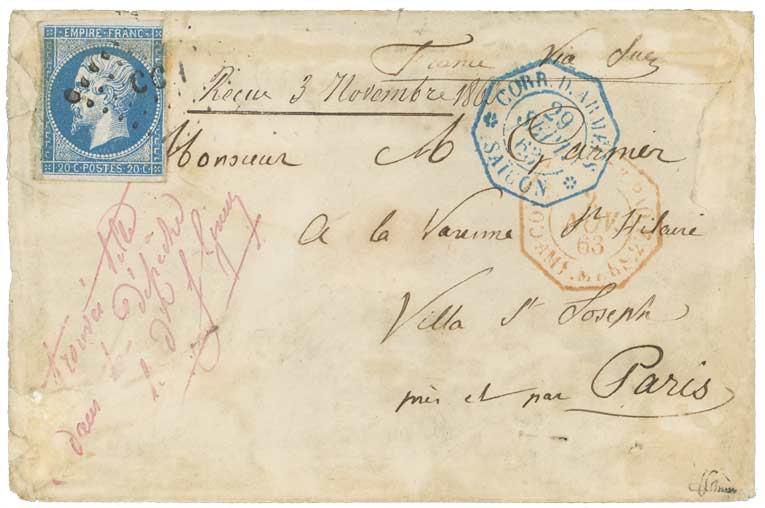 EMPIRE FRANC
20 C POSTES 20 C
France Via Suez
Reçue 3 Novembre 186
CORR. D. ARMEES
29
SEPT
63
SAIGON
Monsieur M Garnier
NOV.
63
à la Varenne St Hilaire
Villa St Joseph
près et par Paris
trouvée
dans la dépêche